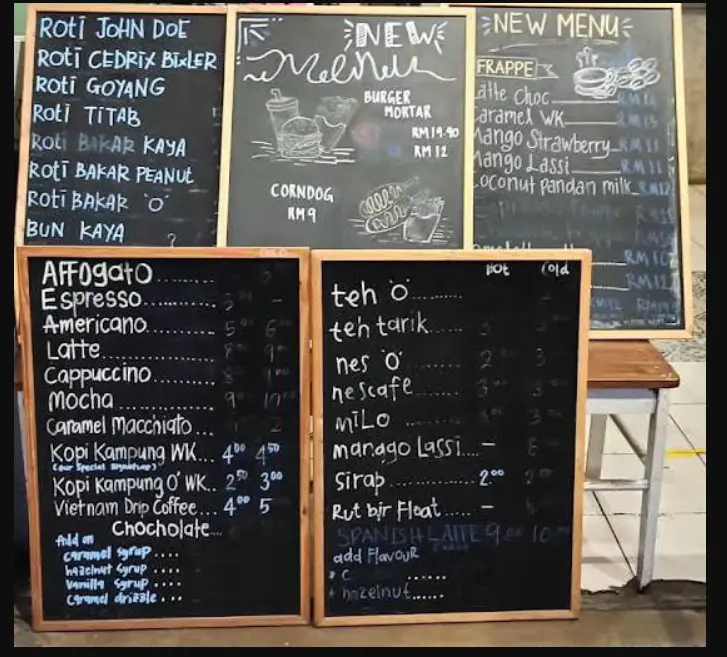 ROTI JOHN DOE
ROTI CEDRIX BIXLER
ROTI GOYANG
ROTI TITAB
ROTI BAKAR KAYA
ROTI BAKAR PEANUT
ROTI BAKAR 'O'
BUN KAYA
NEW
Menu
BURGER
MORTAR
RM 19.90
RM 12
CORNDOG
RM 9
NEW MENU
FRAPPE
atte Choc
aramel WK RM 13
ango Strawberry RM 11
ango Lassi RM 11
oconut pandan milk RM12
RM 10
RM 12
AFFOGATO ........
Espresso .........
Americano ........ 5 6
Latte ........... 9
Cappuccino .......
Mocha ........... 9 10
Caramel Macchiato ...
Kopi Kampung WK... 4.00 4.50
(our Special signature)
Kopi Kampung O' WK.. 2.50 3.00
Vietnam Drip Coffee... 4.00 5
Chocholate...
Add on
caramel syrup ....
hazelnut syrup ....
Vanilla syrup ....
Caramel drizzle ...
HOT Cold
teh 'O' .........
teh tarik ......
nes 'O' ........ 2 3
nescafe ....... 3 3
MILO ......... 3
manago Lassi.... -
Sirap.......... 2.00
Rut bir Float.... -
SPANISH LATTE 9 10
add FlavouR
C ......
hazelnut......